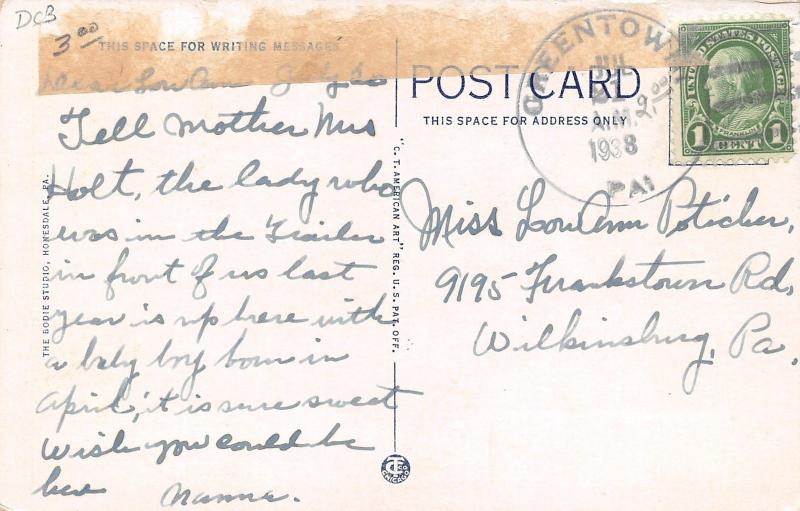 DCB
3.00
THIS SPACE FOR WRITING MESSAGES
Dear Lou Ann July 20
Tell Mother Mrs
Holt, the lady who
was in the Trailer
in front of us last
year is up here with
a baby boy born in
April, it is sure sweet
Wish you could be
here
Nanna.
THE BODIE STUDIO, HONESDALE, PA.
"C. T. AMERICAN ART" REG. U. S. PAT. OFF.
CHICAGO
POST CARD
THIS SPACE FOR ADDRESS ONLY
GREENTOWN
JUL
A.M.
1938
PA
2.00
UNITED STATES POSTAGE
FRANKLIN
1 CENT 1
Miss Lou Ann Poticher,
9195 Frankstown Rd,
Wilkinsburg, Pa.